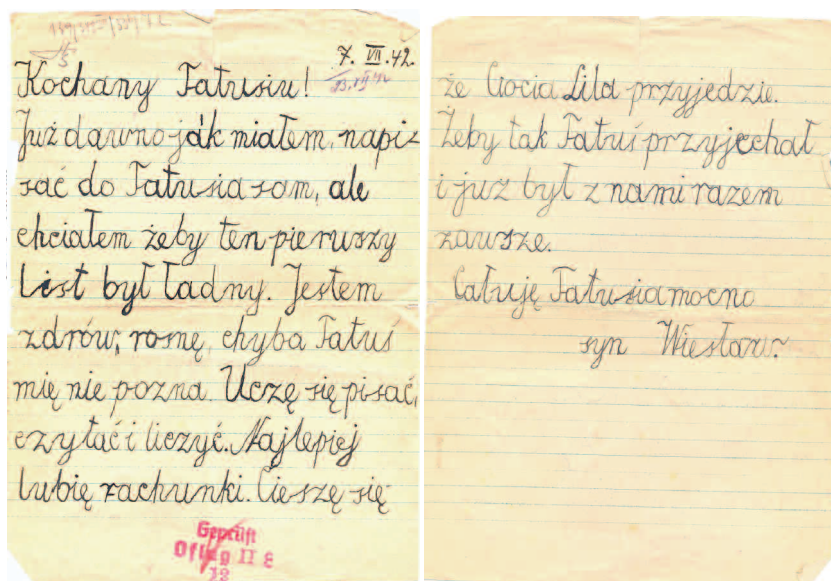 7. VII. 42.
Kochany Tatusiu!
Już dawno jak miałem, napi-
sać do Tatusia sam, ale
chciałem żeby ten pierwszy
list był ładny. Jestem
zdrów, rosnę, chyba Tatuś
mię nie pozna. Uczę się pisać,
czytać i liczyć. Najlepiej
lubię rachunki. Cieszę się
Geprüft
Oflag II E
że Ciocia Lila przyjedzie.
Żeby tak Tatuś przyjechał
i już był z nami razem
zawsze.
Całuję Tatusia mocno
syn Wiesław.